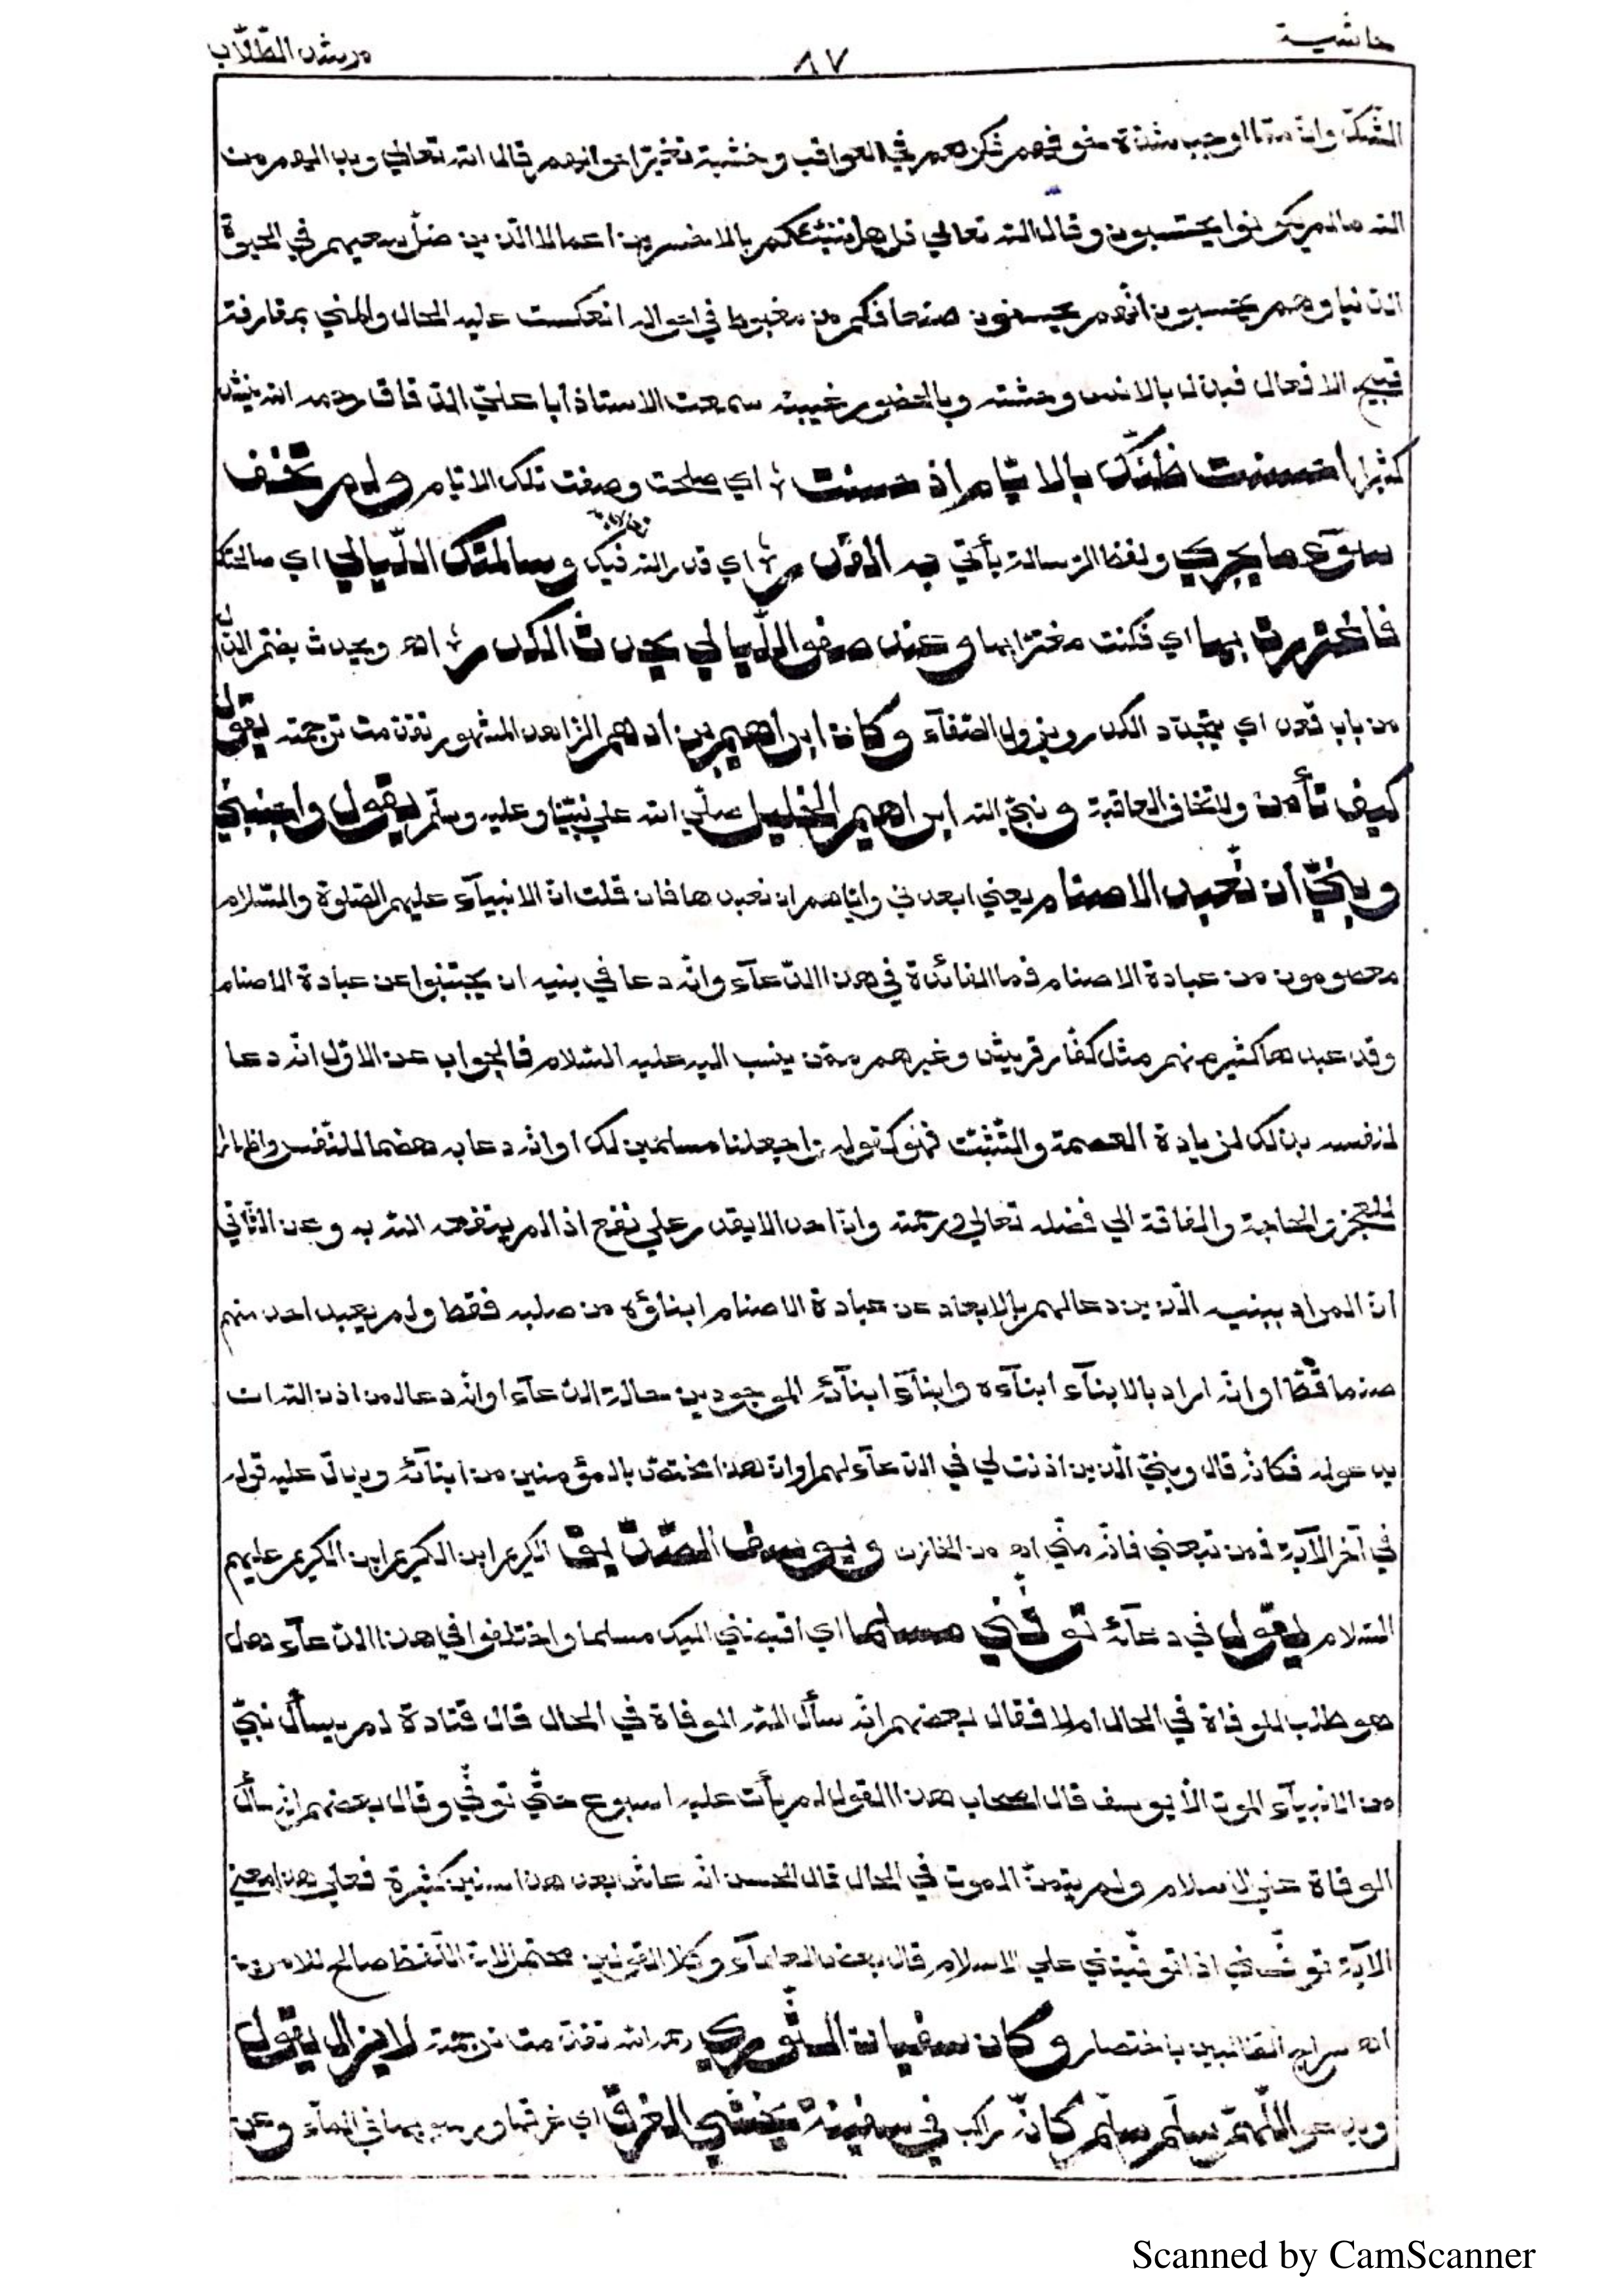 حاشية ٨٧ مرشد الطّلّاب
الشّكّ وانّ ممّا اوجب شدّة خوفهم فكرهم في العواقب وخشية تغيّر احوالهم قال الله تعالي وبدا لهم من
الله مالم يكونوا يحتسبون وقال الله تعالي قل هل ننبّئكم بالاخسرين اعمالا الّذين ضلّ سعيهم في الحيوة
الدّنيا وهم يحسبون انّهم يحسنون صنعا فكم من مغبوط في احواله انعكست عليه الحال والمني بمقارفة
قبيح الافعال فبدّل بالانس وحشته وبالحضور غيبته سمعت الاستاذ أبا عليّ الدّقّاق رحمه الله ينشد
كثيرا احسنت ظنّك بالايّام اذ حسنت ؛ اي صلحت وصفت تلك الايّام ولم تخف
سوء ما يجري ولفظ الرّسالة يأتي به القدر ؛ اي قدر الله فيك وسالمتك اللّيالي اي صالحتك
فاغتررت بها اي فكنت مغترّا بها وعند صفو اللّيالي يحدث الكدر ؛ اه ويحدث بضمّ الدّال
من باب قعد اي يتجدّد الكدر ويزول الصّفآء وكان ابراهيم بن ادهم الزّاهد المشهور تقدّمت ترجمته يقول
كيف تأمن ولا تخاف العاقبة ونبيّ الله ابراهيم الخليل صلّي الله علي نبيّنا وعليه وسلّم يقول واجنبني
وبنيّ أن نّعبد الاصنام يعني ابعدني وايّاهم ان نعبدها فان قلت انّ الانبيآء عليهم الصّلوة والسّلام
معصومون من عبادة الاصنام فما الفائدة في هذا الدّعآء وانّه دعا في بنيه ان يجتنبوا عن عبادة الاصنام
وقد عبدها كثير منهم مثل كفّار قريش وغيرهم ممّن ينسب اليه عليه السّلام فالجواب عن الاوّل انّه دعا
لنفسه بذلك لزيادة العصمة والتّثبّت فهو كقوله واجعلنا مسلمين لك اوانّه دعا به هضما للنّفس واظهارا
للعجز والحاجة والفاقة الي فضله تعالي ورحمته وانّ احدا لا يقدر علي نفع اذا لم ينفعه الله به وعن الثّاني
انّ المراد ببنيه الّذين دعا لهم بالابعاد عن عبادة الاصنام ابناؤه من صلبه فقط ولم يعبد احد منهم
صنما قطّ اوانّه اراد بالابنآء ابنآءه وابنآء ابنآئه الموجودين حالة الدّعآء اوانّه دعا لمن اذن الله ان
يدعو له فكانّه قال وبنيّ الّذين اذنت لي في الدّعآء لهم اوانّ هذا مختصّ بالمؤمنين من ابنآئه ويدلّ عليه قوله
في آخر الآية فمن تبعني فانّه منّي اه من الخازن ويوسف الصّدّيق الكريم ابن الكريم ابن الكريم عليهم
السّلام يقول في دعآئه توفّني مسلما اي اقبضني اليك مسلما واختلفوا في هذا الدّعآء هل
هو طلب للوفاة في الحال ام لا فقال بعضهم انّه سأل الله الوفاة في الحال قال قتادة لم يسأل نبيّ
من الانبيآء الموت الّا يوسف قال اصحاب هذا القول لم يأت عليه اسبوع حتّي توفّي وقال بعضهم انّه سأل
الوفاة علي الاسلام ولم يتمنّ الموت في الحال قال الحسن انّه عاش بعد هذا سنين كثيرة فعلي هذا معني
الآية توفّني اذا توفّيتني علي الاسلام قال بعض العلمآء وكلا القولين محتمل لانّ اللّفظ صالح للامرين
اه سراج القانبين باختصار وكان سفيان الثّوري رحمه الله تقدّمت ترجمته لا يزال يقول
ويدعو اللّهمّ سلّم سلّم كانّه راكب في سفينة يخشي الغرق اي غرقها ورسوبها في المآء وعن
Scanned by CamScanner